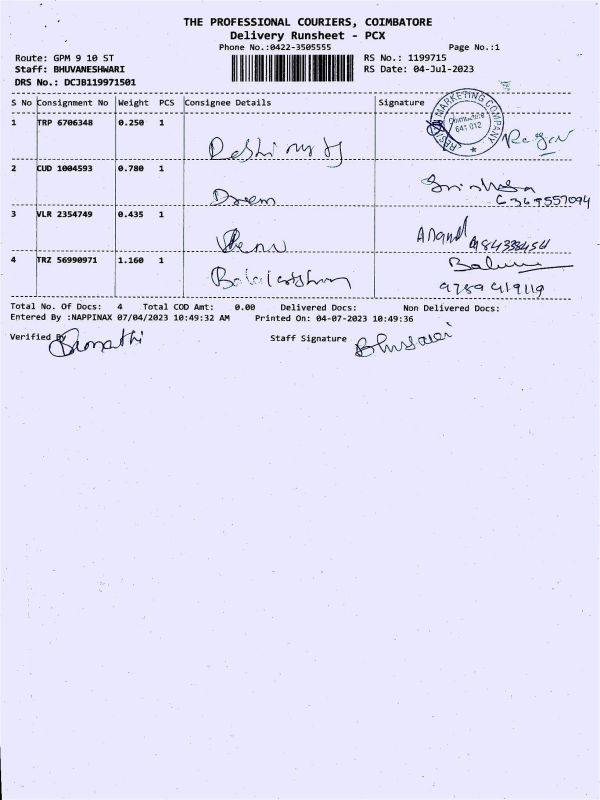 THE PROFESSIONAL COURIERS, COIMBATORE
Delivery Runsheet - PCX
Phone No.:0422-3505555
Page No.:1
Route: GPM 9 10 ST
RS No.: 1199715
Staff: BHUVANESHWARI
RS Date: 04-Jul-2023
DRS No.: DCJB119971501
S No Consignment No Weight PCS Consignee Details Signature
MARKETING COMPANY
Coimbatore
641 012
1 TRP 6706348 0.250 1
2 CUD 1004593 0.780 1
Dream
3 VLR 2354749 0.435 1
Anand
4 TRZ 56990971 1.160 1
9789 419119
Total No. Of Docs: 4 Total COD Amt: 0.00 Delivered Docs: Non Delivered Docs:
Entered By :NAPPINAX 07/04/2023 10:49:32 AM Printed On: 04-07-2023 10:49:36
Verified By
Staff Signature